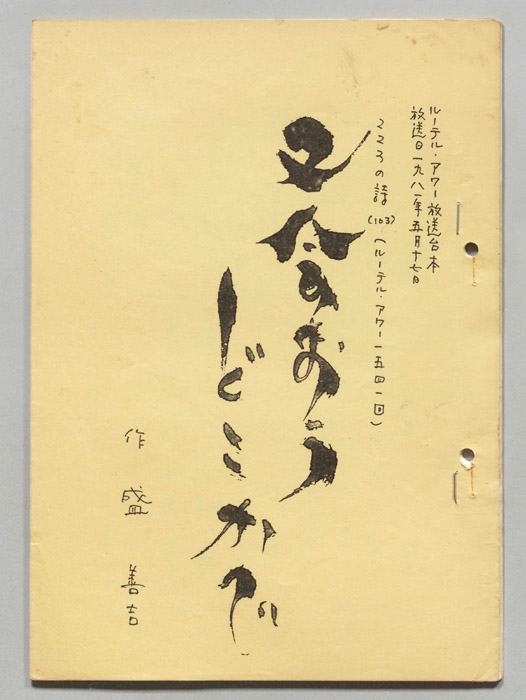 ルーテル・アワー放送台本
放送日一九八一年五月十七日
こころの詩(103)(ルーテル・アワー一五四一回)
又会おう
どこかで
作 盛 善吉